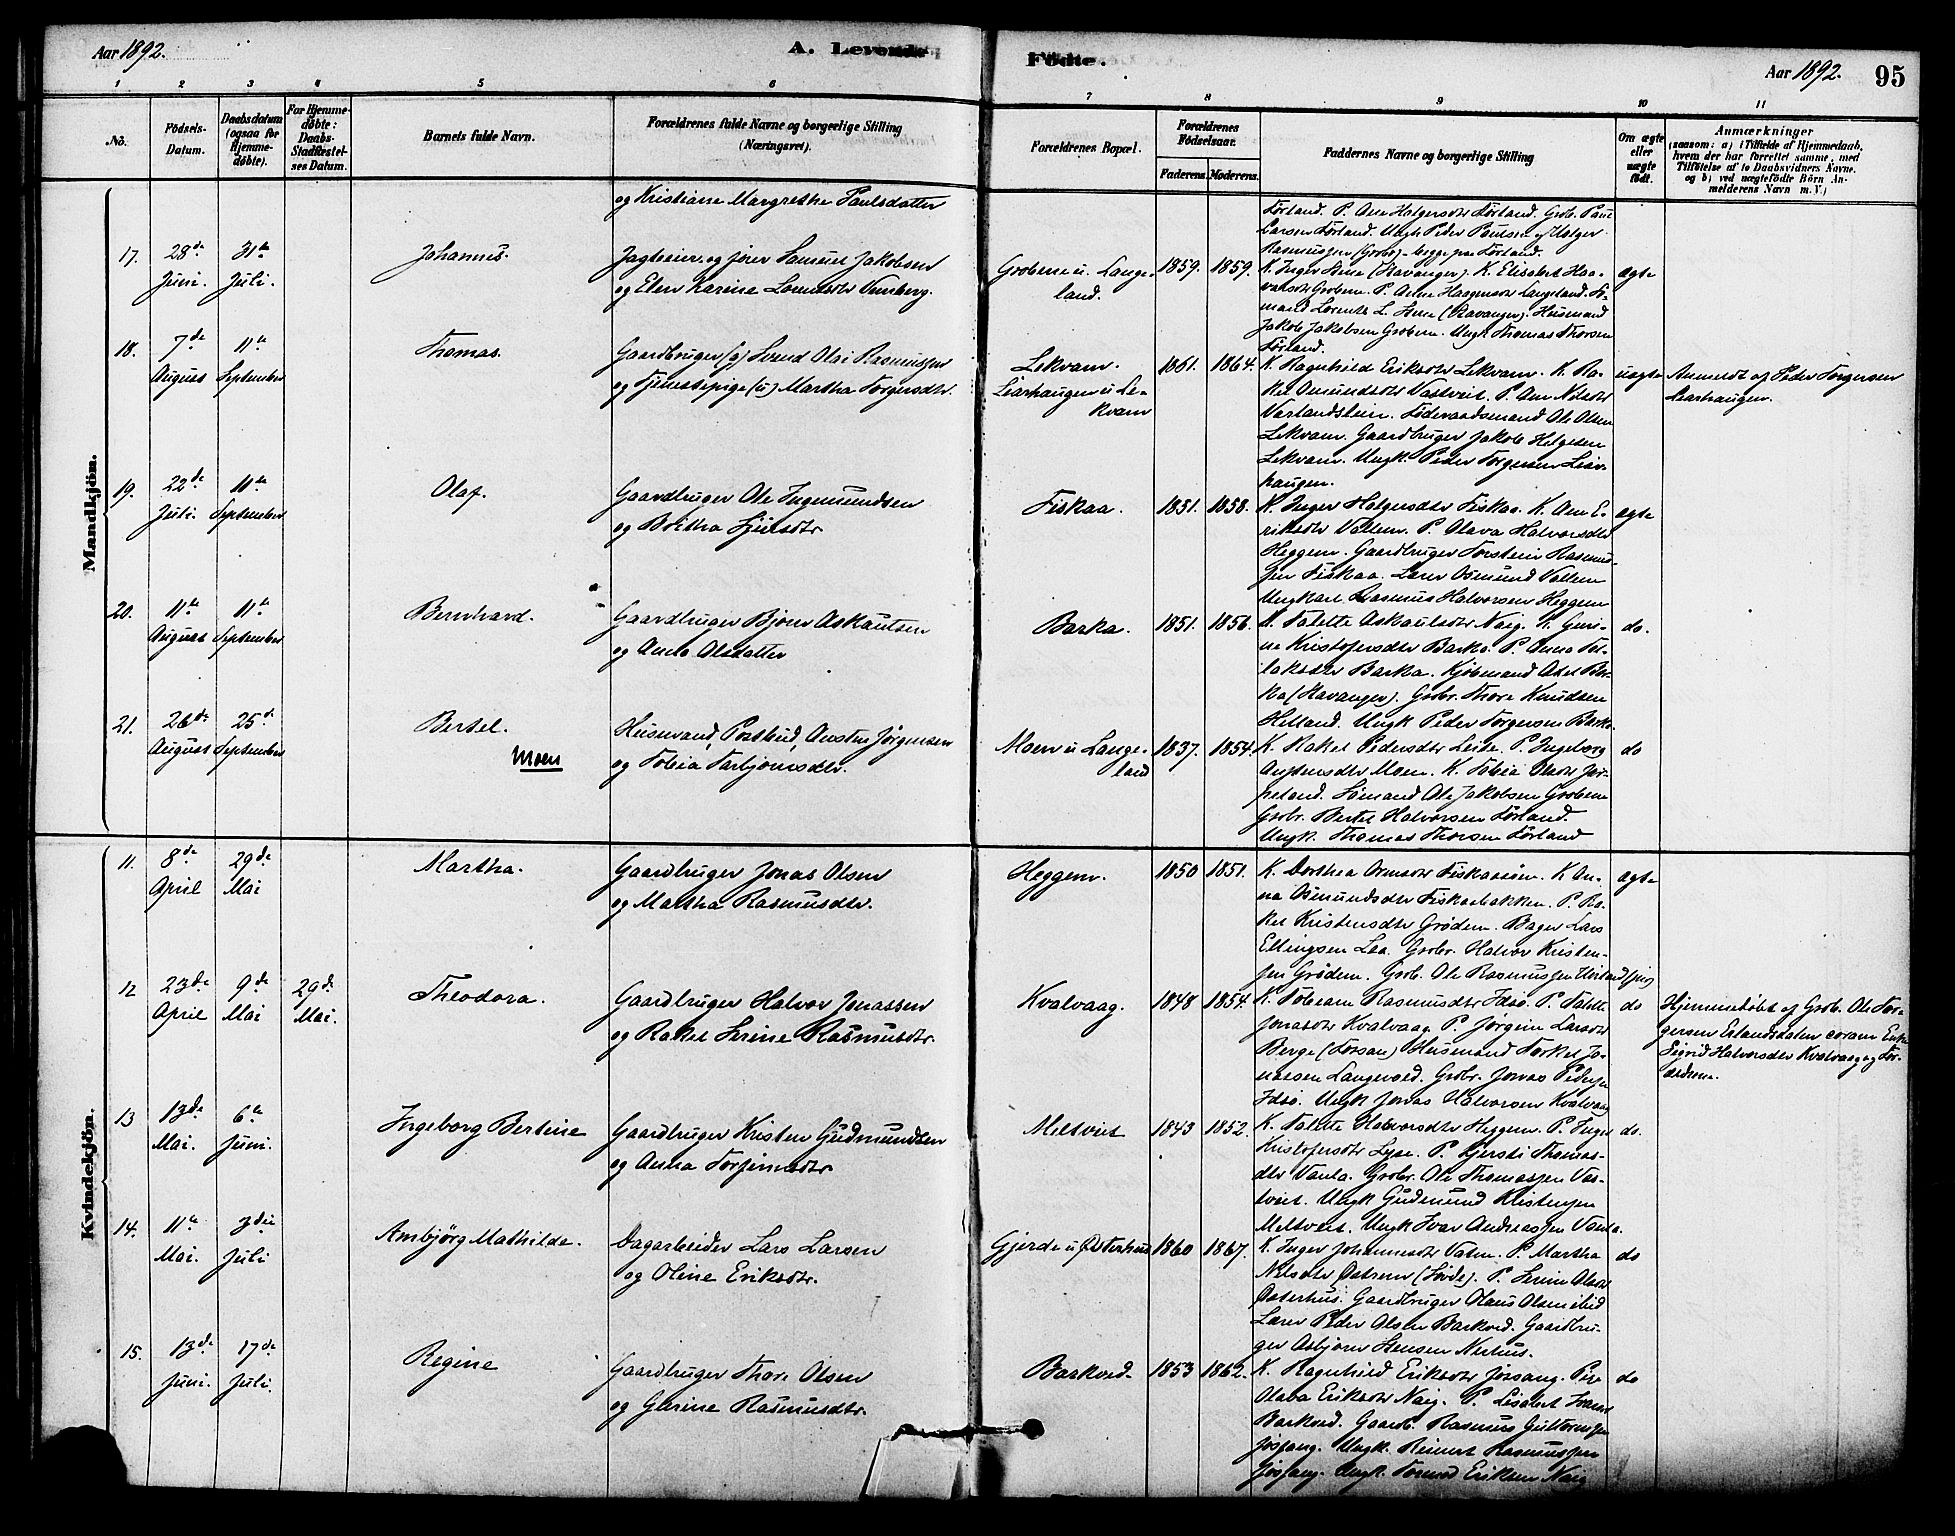 Aar 1892.
A. Levende
Födte.
Aar 1892.
95
1 2 3 4 5 6 7 8 9 10 11
No.
Födsels-
Datum.
Daabsdatum
(ogsaa for
Hjemme-
döbte).
For Hjemme-
döbte:
Daabs-
Stadfæstel-
ses Datum.
Barnets fulde Navn.
Forældrenes fulde Navne og borgerlige Stilling
(Næringsvei).
Forældrenes Bopæl.
Forældrenes
Födselsaar.
Faderens. Moderens.
Faddernes Navne og borgerlige Stilling
Om ægte
eller
uægte
födt.
Anmærkninger
(saasom: a) i Tilfælde af Hjemmedaab,
hvem der har forrettet samme, med
Tilföielse af to Daabsvidners Navne.
og b) ved uægtefödte Börn An-
melderens Navn m. V.)
Mandkjön.
og Kristiane Margrethe Paulsdatter
Førland. P. Ane Holgersdtr Førland. Grbr. Paul
Larsen Førland. Ungk. Peder Paulsen og Holger
Rasmussen (Grbr) begge fra Førland.
17.
28de
Juni.
31te
Juli.
Johannes.
Jagteier og fører Samuel Jakobsen
og Elen Karine Lorentsdtr
Grobene u. Lange-
land.
1859. 1859.
K. Inger Stene (Stavanger). K. Elisabet Haa-
P. Anne Haagensdtr Langeland. Sø-
mand Lorents L. Stene (Stavanger). Husmand
Jakob Jakobsen Grobene. Ungk. Thomas Thorsen
Førland.
ægte
18.
7de
August
11te
September
Thomas.
Gaardbruger (g) Svend Olai Rasmussen
og Tjenestepige (u) Martha Torgersdtr.
Lekvam.
Leirhaugen u Le-
kvam
1861. 1864.
K. Ragnhild Eriksdtr Lekvam. K. Ra-
kel Omundsdtr Vastveit. P. Ane Nilsdtr
Føderaadsmand Ole Olsen
Lekvam. Gaardbruger Jakob Helgesen
Lekvam. Ungk. Peder Torgersen Leir-
haugen.
uægte
Anmeldt af Peder Torgersen
Leirhaugen.
19.
22de
Juli.
11te
September
Olaf.
Gaardbruger Ole Ingemundsen
og Bertha Sjulsdtr
Fiskaa.
1851. 1858.
K. Inger Holgersdtr Fiskaa. K. Ane E-
riksdtr Vallem. P. Olava Halvorsdtr
Heggem. Gaardbruger Torstein Rasmus-
sen Fiskaa. Lærer Osmund Vallem
Ungkarl Rasmus Halvorsen Heggem
ægte
20.
11te
August
11te
September
Bernhard.
Gaardbruger Bjørn Askautsen
og Anna Olsdatter
Barka.
1851. 1856.
K. Talette Askautsdtr Naig. K. Guri-
ne Kristofersdtr Barka. P. Anna Tol-
laksdtr Barka. Kjøbmand Aksel Bar-
ka (Stavanger). Grbr. Thore Knudsen
Helland. Ungk Peder Torgersen Barka
do.
21.
26de
August
25de
September
Bertel.
Moen
Husmand, Postbud, Austen Jørgensen
og Tobia Torbjørnsdtr.
Moen u Lange-
land
1837. 1854.
K. Rakel Pedersdtr Leite. P. Ingeborg
Austensdtr Moen. K. Tobia Olsdtr Jør-
peland. Sømand Ole Jakobsen Grobene
Grbr. Bertel Halvorsen Førland.
Ungk. Thomas Thorsen Førland
do
Kvindekjön.
11.
8de
April
29de
Mai
Martha.
Gaardbruger Jonas Olsen
og Martha Rasmusdtr.
Heggem.
1850 1851.
K. Dorthea Ormsdtr Fiskaaøen. K An-
na Osmundsdtr Fiskaabakken. P. Ra-
kel Kristensdtr Grødem. Bager Lars
Ellingsen Laa. Grbr. Halvor Kristen-
sen Grødem. Grb. Ole Rasmussen
ægte
12
23de
April
9de
Mai
29de
Mai.
Theodora.
Gaardbruger Halvor Jonassen
og Rakel Serine Rasmusdtr.
Kvalvaag.
1848 1854.
K. Tobeane Rasmusdtr Idsø. P. Talette
Jonasdtr Kvalvaag. P. Jørgine Larsdtr
Berge (Forsan) Husmand Torkel Jo-
nassen Langevad. Grbr. Jonas Pedersen
Idsø. Ungk Jonas Halvorsen Kvalvaag
do
Hjemmedøbt af Grbr. Ole Tor-
gersen Eslandsdalen coram Enke
Sigrid Halvorsdtr Kvalvaag og For-
ældrene.
13
13de
Mai.
6te
Juni.
Ingeborg Bertine
Gaardbruger Kristen Gudmundsen
og Anna Torfinnsdtr
Meltveit
1843 1852.
K. Talette Halvorsdtr Heggem. P. Inger
Kristofersdtr Lyse. P. Kjersti Thomas-
dtr Vanla. Grbr. Ole Thomassen Vas-
tveit. Ungk Gudmund Kristensen
Meltveit. Ungk Ivar Andreassen Vanla.
do.
14.
11te
Mai.
3die
Juli
Ambjørg Mathilde.
Dagarbeider Lars Larsen
og Oline Eriksdtr.
Gjerde u Østerhus
1860 1867.
K. Inger Johannesdtr Vatne. P. Martha
Nilsdtr Østrem (Søvde). P. Serine Olsdtr
Østerhus. Gaardbruger Olaus Olsen ibid
Lærer Peder Olsen Barkved. Gaardbru-
ger Asbjørn Hansen Nerhus.
do
15.
13de
Juni.
17de
Juli.
Regine
Gaardbruger Thore Olsen
og Gurine Rasmusdtr.
Barkved.
1853 1862.
K. Ragnhild Eriksdtr Jøssang. Pige
Olava Eriksdtr Naig. P. Lisabet
Barkved. Gaardb. Rasmus Guttormsen
Jøssang. Ungk. Reinert Rasmussen
Jøssang. Ungk. Tormod Eriksen Naig
do